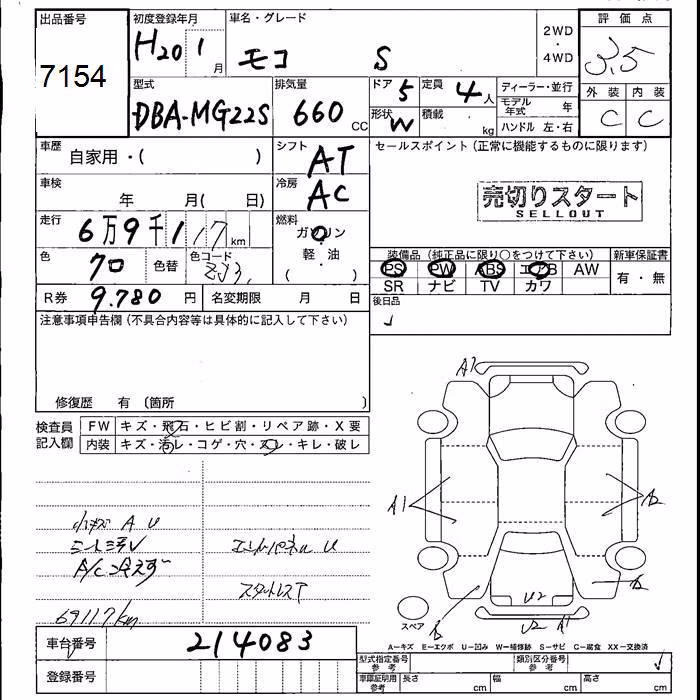 出品番号 初度登録年月 車名・グレード 2WD・4WD 評価点
7154 H20 1月 モコ S 3.5
型式 排気量 ドア 5 定員 4人 ディーラー・並行 外装 内装
DBA-MG22S 660cc 形状 W 積載 kg モデル年式 年 C C
ハンドル 左・右
車歴 自家用・( ) シフト AT セールスポイント(正常に機能するものに限ります)
車検 年 月( 日) 冷房 AC 売切りスタート
SELLOUT
走行 6万9千117km 燃料 ガソリン
軽・油
( )
色 クロ 色替 色コード ZJ3 装備品(純正品に限り○をつけて下さい) 新車保証書
PS PW ABS エアB AW 有・無
SR ナビ TV カワ
R券 9.780円 名変期限 月 日 後日品
注意事項申告欄(不具合内容等は具体的に記入して下さい)
修復歴 有〔箇所 〕
検査員記入欄 FW キズ・飛石・ヒビ割・リペア跡・X要
内装 キズ・汚レ・コゲ・穴・スレ・キレ・破レ
A1
A1
A2
U2
U2 A1
スペア
小キズ A U
シートヨゴレ エンドパネル U
A/C冷えず
スタットレスT
69117km
車台番号 214083
A=キズ E=エクボ U=凹み W=補修跡 S=サビ C=腐食 XX=交換済
登録番号 型式指定番号 参考 類別区分番号 参考
車庫証明用 参考 長さ cm 幅 cm 高さ cm